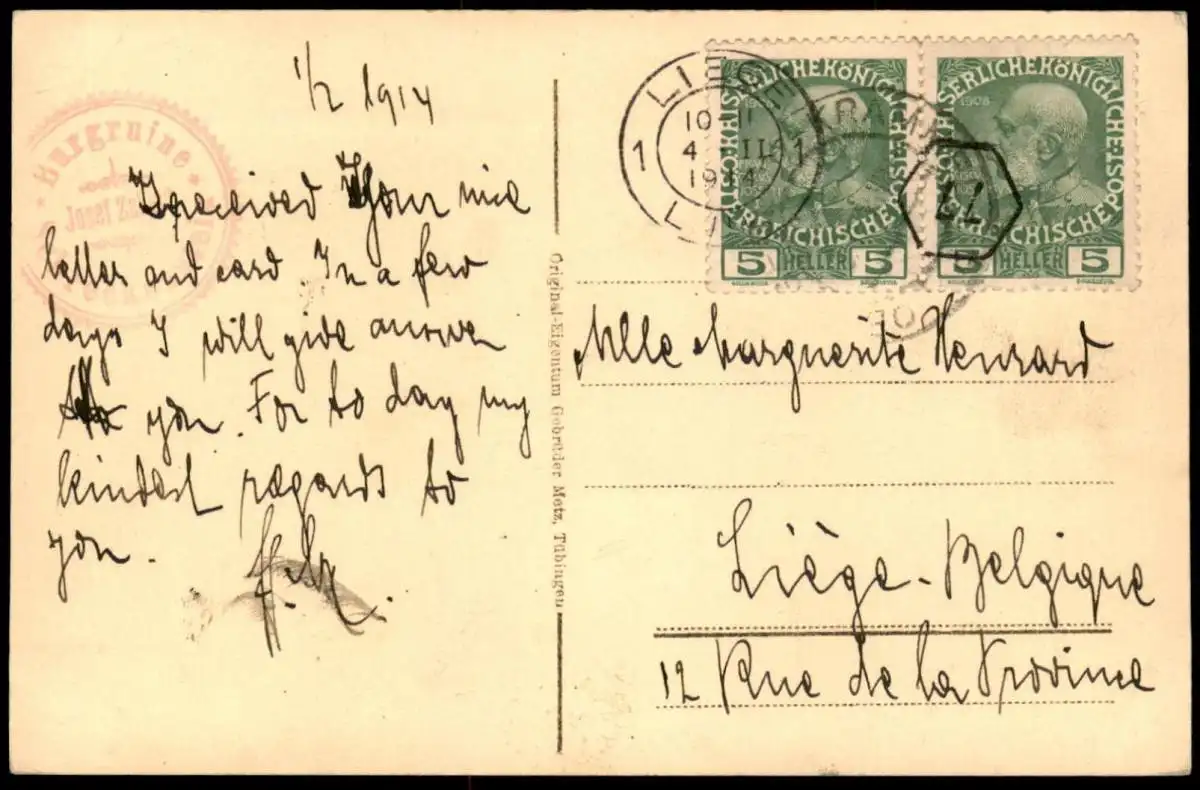 1/2 1914
I received Your nice
letter and card. In a few
days I will give answer
to you. For to day my
kindest regards to
you.
Burgruine
Josef
Original-Eigentum Gebrüder Metz, Tübingen
LIEGE
10-11
1 4 II 1
1914
KAISERLICHEKÖNIGLICHE
ÖSTERREICHISCHEPOST
1908
5 HELLER 5
KAISERLICHEKÖNIGLICHE
ÖSTERREICHISCHEPOST
1908
5 HELLER 5
LL
Mlle Marguerite Henrard
Liège - Belgique
12 Rue de la Province